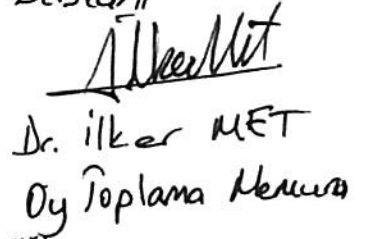 İlker Met
Dr. ilker MET
Oy Toplama Memuru